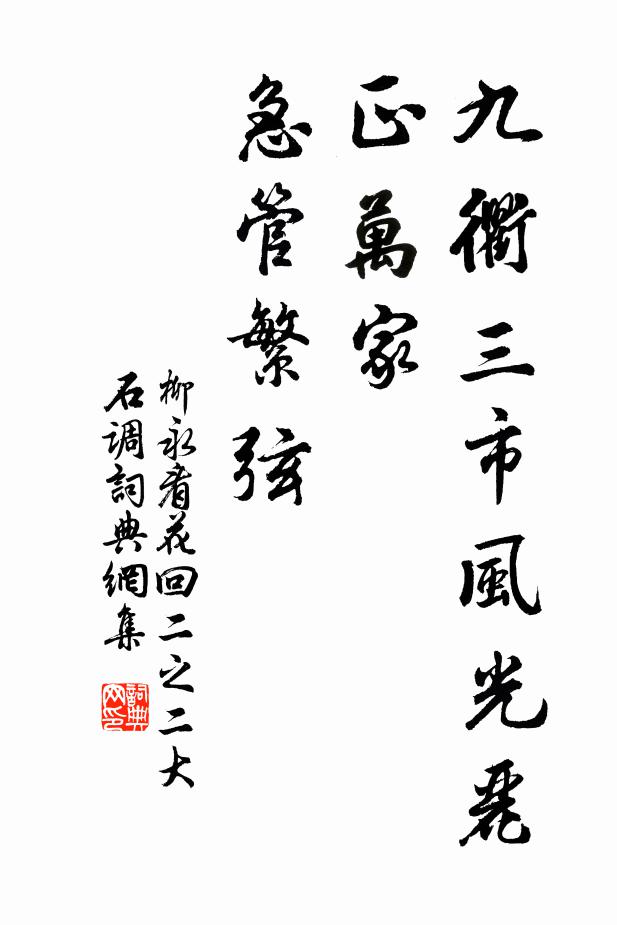 九衢三市風光麗
正萬家
急管繁弦
柳永看花回二之二大
石调詞典網集
詞典网印